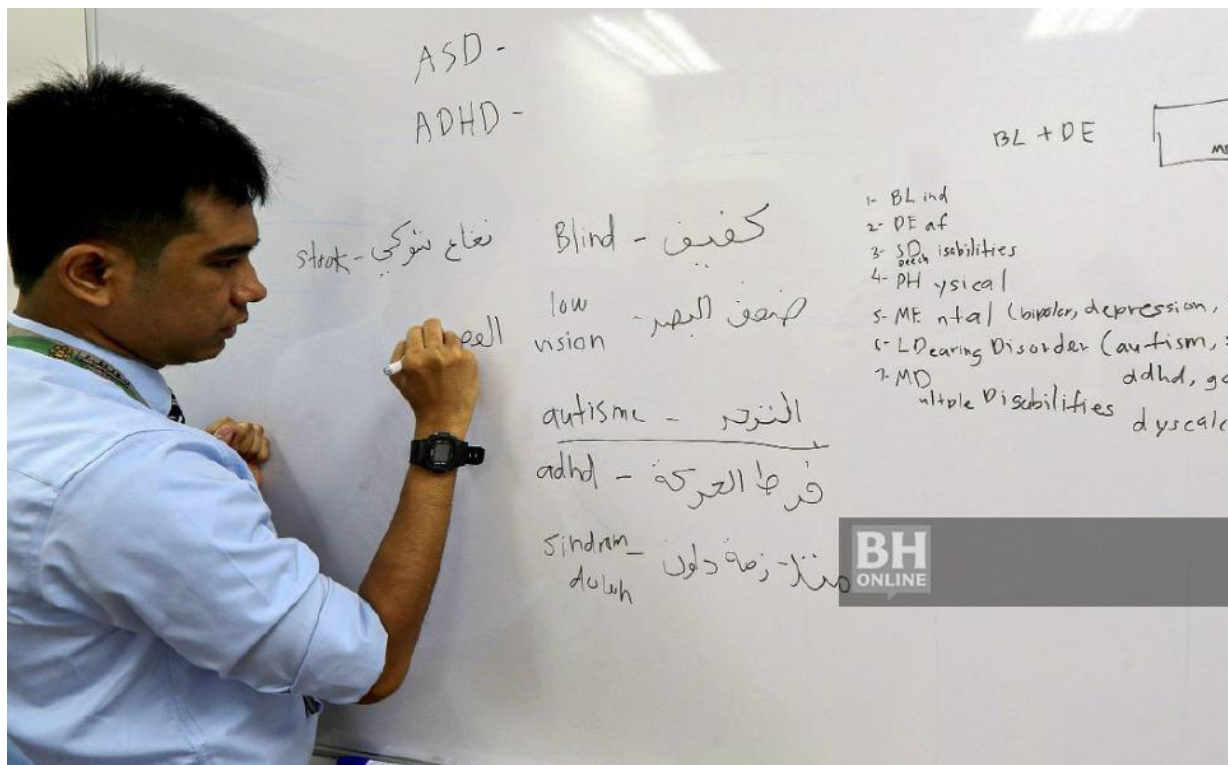 ASD -
ADHD -
BL + DE
strok - نخاع شوكي
Blind - كفيف
low vision - ضعف البصر
autisme - التوحد
adhd - فرط الحركة
sindrom -
متلازمة داون
1- BLind
2- DEaf
3- SDisabilities
peech
4- PHysical
5- MEntal (bipolar, depression,
6- LDearing Disorder (autism,
adhd,
7- MD
ultple Disabilities
BH
ONLINE